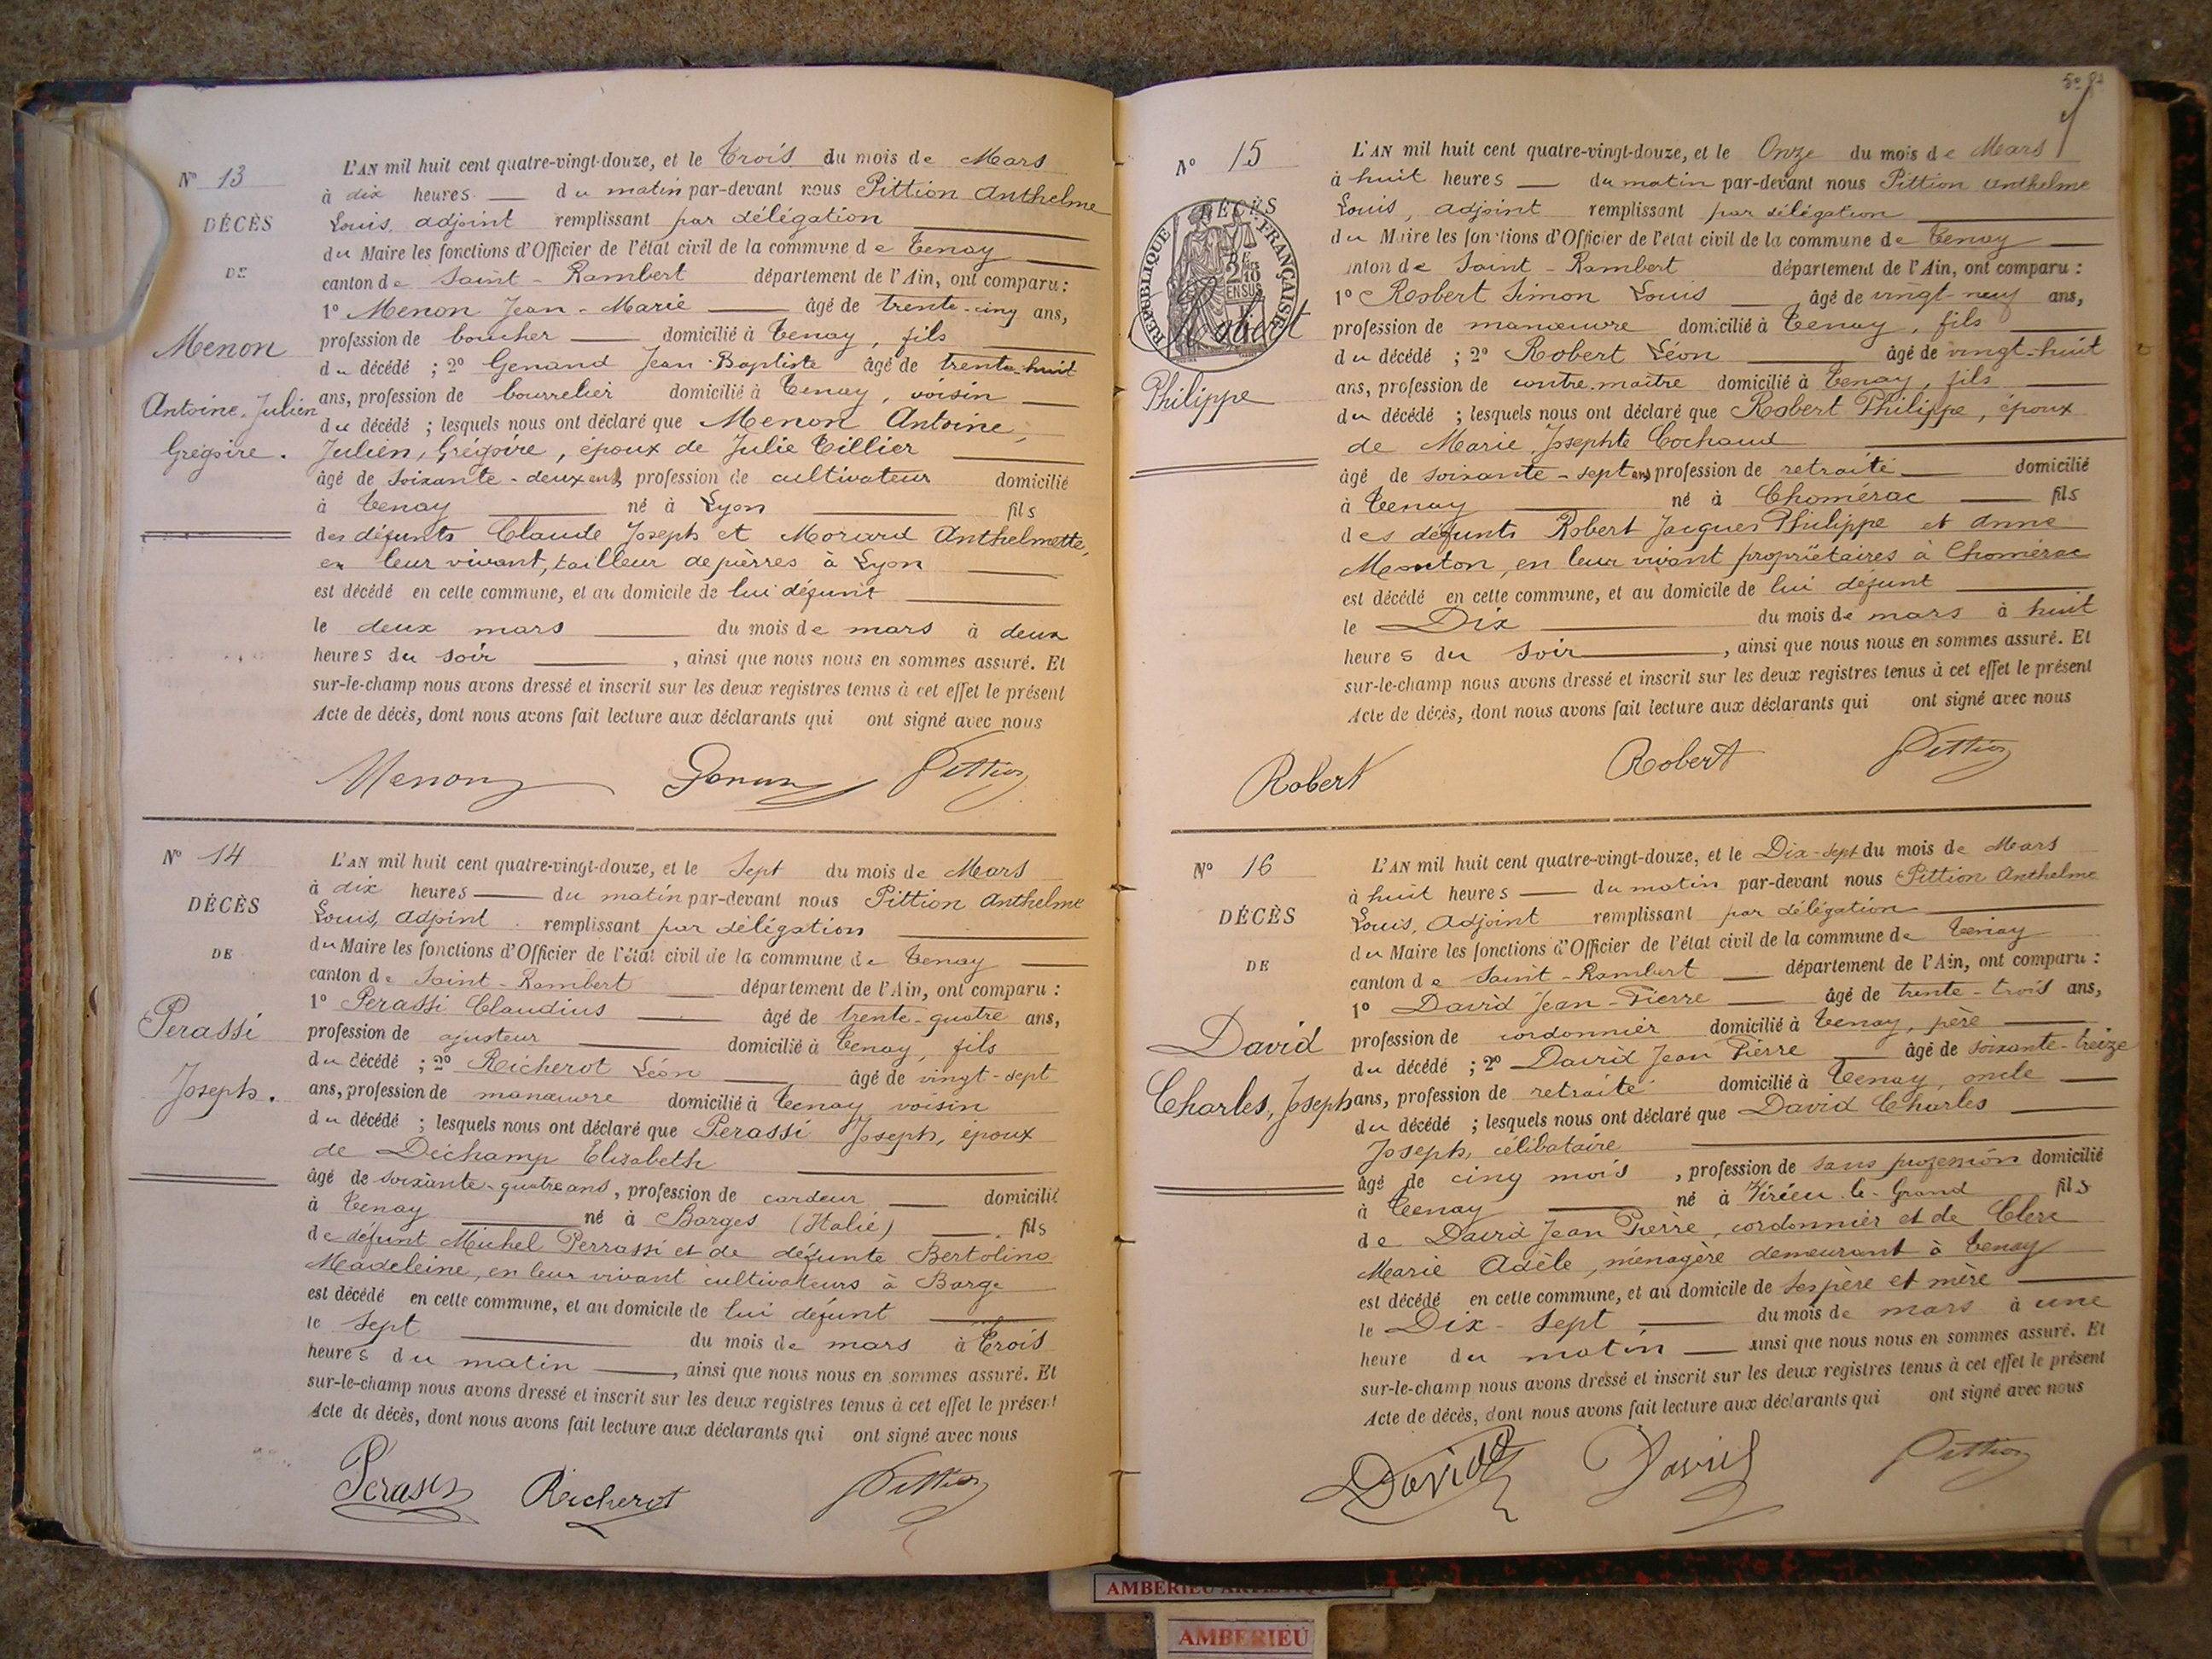 N° 13
DÉCÈS
DE
Menon
Antoine, Julien
Grégoire.
L'AN mil huit cent quatre-vingt-douze, et le Trois du mois de Mars
à dix heures du matin par-devant nous Pittion Anthelme
Louis, adjoint remplissant par délégation
du Maire les fonctions d'Officier de l'état civil de la commune de Tenay
canton de Saint-Rambert département de l'Ain, ont comparu :
1° Menon Jean-Marie âgé de trente-cinq ans,
profession de boucher domicilié à Tenay, fils
du décédé ; 2° Genand Jean-Baptiste âgé de trente-huit
ans, profession de bourrelier domicilié à Tenay, voisin
du décédé ; lesquels nous ont déclaré que Menon Antoine,
Julien, Grégoire, époux de Julie Tillier
âgé de soixante-deux ans, profession de cultivateur domicilié
à Tenay né à Lyon fils
des défunts Claude Joseph et Morard Anthelmette,
en leur vivant, tailleur de pierres à Lyon
est décédé en cette commune, et au domicile de lui défunt
le deux mars du mois de mars à deux
heures du soir, ainsi que nous nous en sommes assuré. Et
sur-le-champ nous avons dressé et inscrit sur les deux registres tenus à cet effet le présent
Acte de décès, dont nous avons fait lecture aux déclarants qui ont signé avec nous
Menon Pittion
N° 14
DÉCÈS
DE
Perassi
Joseph.
L'AN mil huit cent quatre-vingt-douze, et le Sept du mois de Mars
à dix heures du matin par-devant nous Pittion Anthelme
Louis, adjoint remplissant par délégation
du Maire les fonctions d'Officier de l'état civil de la commune de Tenay
canton de Saint-Rambert département de l'Ain, ont comparu :
1° Perassi Claudius âgé de trente-quatre ans,
profession de ajusteur domicilié à Tenay, fils
du décédé ; 2° Richerot Léon âgé de vingt-sept
ans, profession de manœuvre domicilié à Tenay voisin
du décédé ; lesquels nous ont déclaré que Perassi Joseph, époux
de Dechamp Elisabeth
âgé de soixante-quatre ans, profession de cardeur domicilié
à Tenay né à Barges (Italie) fils
de défunt Michel Perrassi et de défunte Bertolino
Madeleine, en leur vivant cultivateurs à Barge
est décédé en cette commune, et au domicile de lui défunt
le Sept du mois de mars à Trois
heures du matin, ainsi que nous nous en sommes assuré. Et
sur-le-champ nous avons dressé et inscrit sur les deux registres tenus à cet effet le présent
Acte de décès, dont nous avons fait lecture aux déclarants qui ont signé avec nous
Richerot Pittion
N° 15
DÉCÈS
RÉPUBLIQUE FRANÇAISE
2/10 EN SUS
Robert
Philippe
L'AN mil huit cent quatre-vingt-douze, et le Onze du mois de Mars
à huit heures du matin par-devant nous Pittion Anthelme
Louis, adjoint remplissant par délégation
du Maire les fonctions d'Officier de l'état civil de la commune de Tenay
anton de Saint-Rambert département de l'Ain, ont comparu :
1° Robert Simon Louis âgé de vingt-neuf ans,
profession de manœuvre domicilié à Tenay, fils
du décédé ; 2° Robert Léon âgé de vingt-huit
ans, profession de contre-maître domicilié à Tenay, fils
du décédé ; lesquels nous ont déclaré que Robert Philippe, époux
de Marie Josephte Cochaud
âgé de soixante-sept ans profession de retraité domicilié
à Tenay né à Chomérac fils
des défunts Robert Jacques Philippe et Anne
Monton, en leur vivant propriétaires à Chomérac
est décédé en cette commune, et au domicile de lui défunt
le Dix du mois de mars à huit
heures du soir, ainsi que nous nous en sommes assuré. Et
sur-le-champ nous avons dressé et inscrit sur les deux registres tenus à cet effet le présent
Acte de décès, dont nous avons fait lecture aux déclarants qui ont signé avec nous
Robert Robert Pittion
N° 16
DÉCÈS
DE
David
Charles, Joseph
L'AN mil huit cent quatre-vingt-douze, et le Dix-sept du mois de Mars
à huit heures du matin par-devant nous Pittion Anthelme
Louis, Adjoint remplissant par délégation
du Maire les fonctions d'Officier de l'état civil de la commune de Tenay
canton de Saint-Rambert département de l'Ain, ont comparu :
1° David Jean-Pierre âgé de trente-trois ans,
profession de cordonnier domicilié à Tenay, père
du décédé ; 2° David Jean Pierre âgé de soixante-treize
ans, profession de retraité domicilié à Tenay, oncle
du décédé ; lesquels nous ont déclaré que David Charles
Joseph, célibataire
âgé de cinq mois, profession de sans profession domicilié
à Tenay né à Virieu-le-Grand fils
de David Jean Pierre, cordonnier et de Clerc
Marie Adèle, ménagère demeurant à Tenay
est décédé en cette commune, et au domicile de ses père et mère
le Dix-Sept du mois de mars à une
heure du matin ainsi que nous nous en sommes assuré. Et
sur-le-champ nous avons dressé et inscrit sur les deux registres tenus à cet effet le présent
Acte de décès, dont nous avons fait lecture aux déclarants qui ont signé avec nous
David David Pittion
AMBERIEU